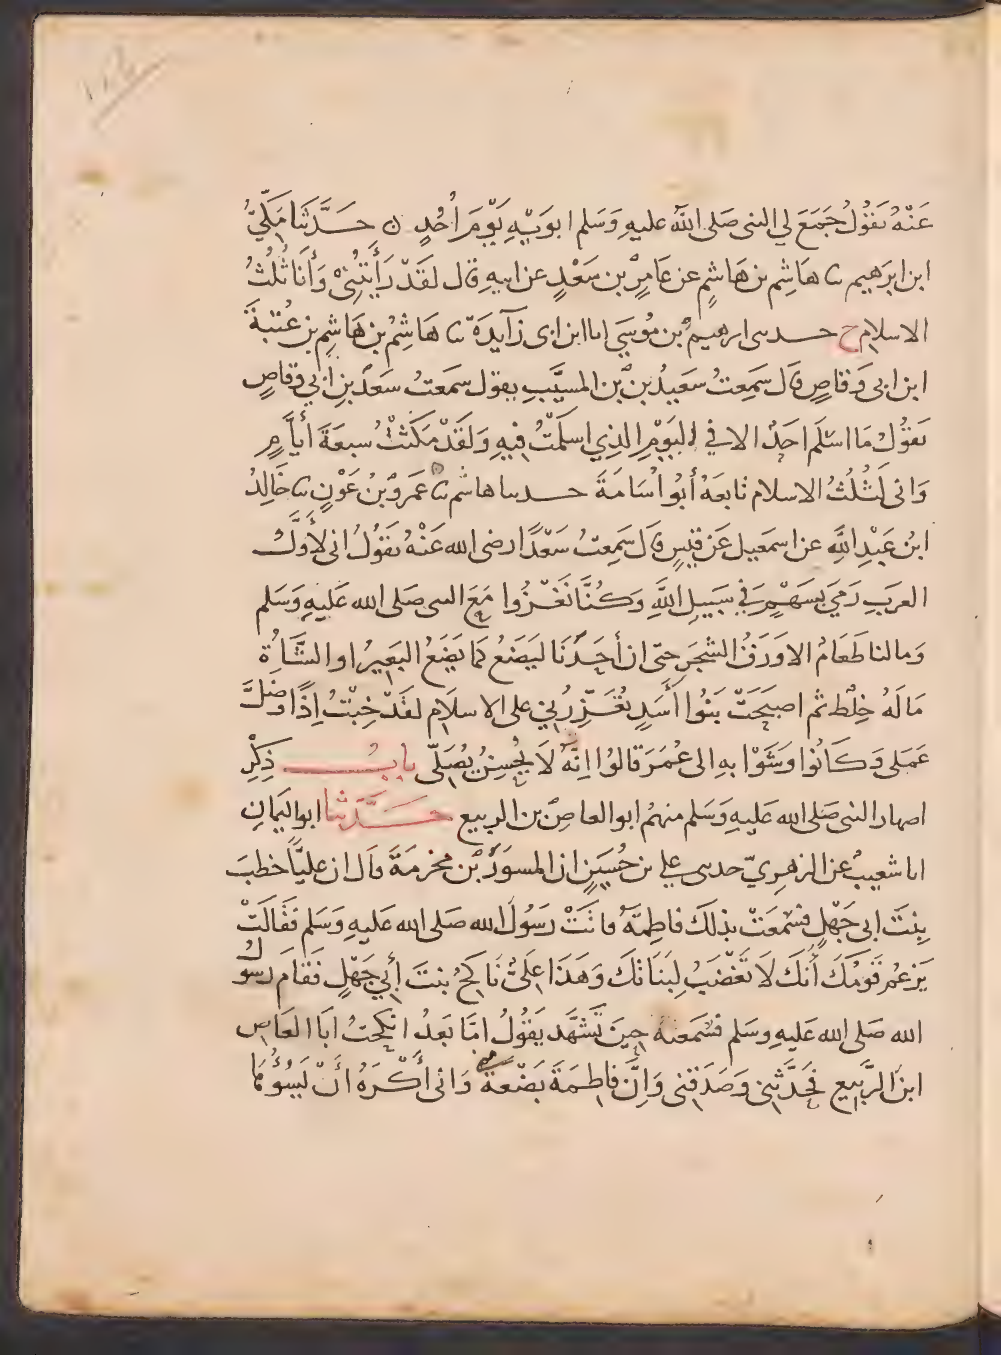 عَنْهُ يَقُولُ جَمَعَ لي النبى صَلى اللهُ عليهِ وَسَلم ابوَيْهِ يَوْمَ أُحُدٍ ن حَدَّثَنَا مَكِّيُّ
ابن ابرَهيم ثنا هَاشِم بن هَاشِمٍ عن عَامِرِ بن سَعْدٍ عن ابيهِ قال لَقَدْ رَأَيْتُنِيْ وَأَنَا ثُلُثُ
الاسلامِ ح حدثنى ابرهيمُ بن مُوسَى انا ابن ابى زَآيدَة ثنا هَاشِمُ بن هَاشِمِ بن عُتْبَةَ
ابن ابى وَقاصٍ قال سَمِعتُ سَعِيدُ بن بن المسيَّبِ يقول سمَعتُ سَعدَ بنِ ابي وقاصٍ
يَقوُل مَا اسْلَم احَدٌ الا في اليَوْمِ الذِي اسلَمْتُ فِيهِ وَلَقَدْ مَكَثْتُ سبعَةَ أيَّامٍ
وَانى لَثُلُثُ الاسلام تابَعَهُ أبُو اُسَامَةَ حدثنا هاشم ثنا عَمرَوُ بْنُ عَوْنٍ ثنا خَالِدُ
ابنُ عَبْدِ اللَّهِ عن اسمَعيل عَن قيسٍ قال سَمِعتُ سَعْدًا رضى الله عَنْهُ يَقُولُ انى لأوَّلُ
العرَبِ رَمَي بِسَهْمٍ في سَبيلِ اللَّهِ وَكُنَّا نَغْزُوا مَعَ النبى صَلى الله عَليهِ وَسَلم
وَمالنا طَعَامٌ الا وَرَقُ الشجَرِ حتى ان أحَدَنَا لَيَضَعُ كَمَا يَضَعُ البَعِيرُ او الشَّاةُ
مَالَهُ خِلْط ثم اصبَحَتْ بَنُوا أَسَدٍ تُعَزِّرُنِي على الاسلاَمِ لقدْ خِبْتُ اِذًا وضَلَّ
عَمَلى وَكَانُوا وَشَوْا بهِ الى عُمَرَ قالُوا انّهُ لاَ يُحْسِنُ يُصَلّى بَابُ ذِكْرِ
اصهار النبى صَلى الله عَليهِ وَسَلم منهم ابو العاصِ بن الربيع حَدَّثنا ابو اليَمانِ
انا شعيبٌ عن الزهِريّ حدثنى علي بن حُسَينٍ ان المسوَرَ بْن مخرمَةَ قال ان عليًّا خطبَ
بِنتَ ابى جَهْلٍ فسَمعَتْ بذلكَ فاطِمَةُ فاتَتْ رَسُولَ الله صَلى الله عَليهِ وَسَلم فقَالَتْ
يَزعمُ قَومُكَ أنكَ لاَ تَغْضَبُ لِبَنَاتكَ وَهَذَا عَلىٌّ نَاكحٌ بنتَ أبِي جَهْلٍ فقامَ رَسوُلُ
الله صَلى الله عَليهِ وسَلم فسَمعتهُ حِينَ تَشَهَّد يَقُولُ امَّا بَعدُ انكحتُ ابَا العَاصِ
ابنَ الرَّبِيعِ فحَدَّثَنِي وَصَدَقنِى وَاِنَّ فاطِمَةَ بَضْعَة منى وَانى أكْرَهُ أنْ يَسُوُءَهَا